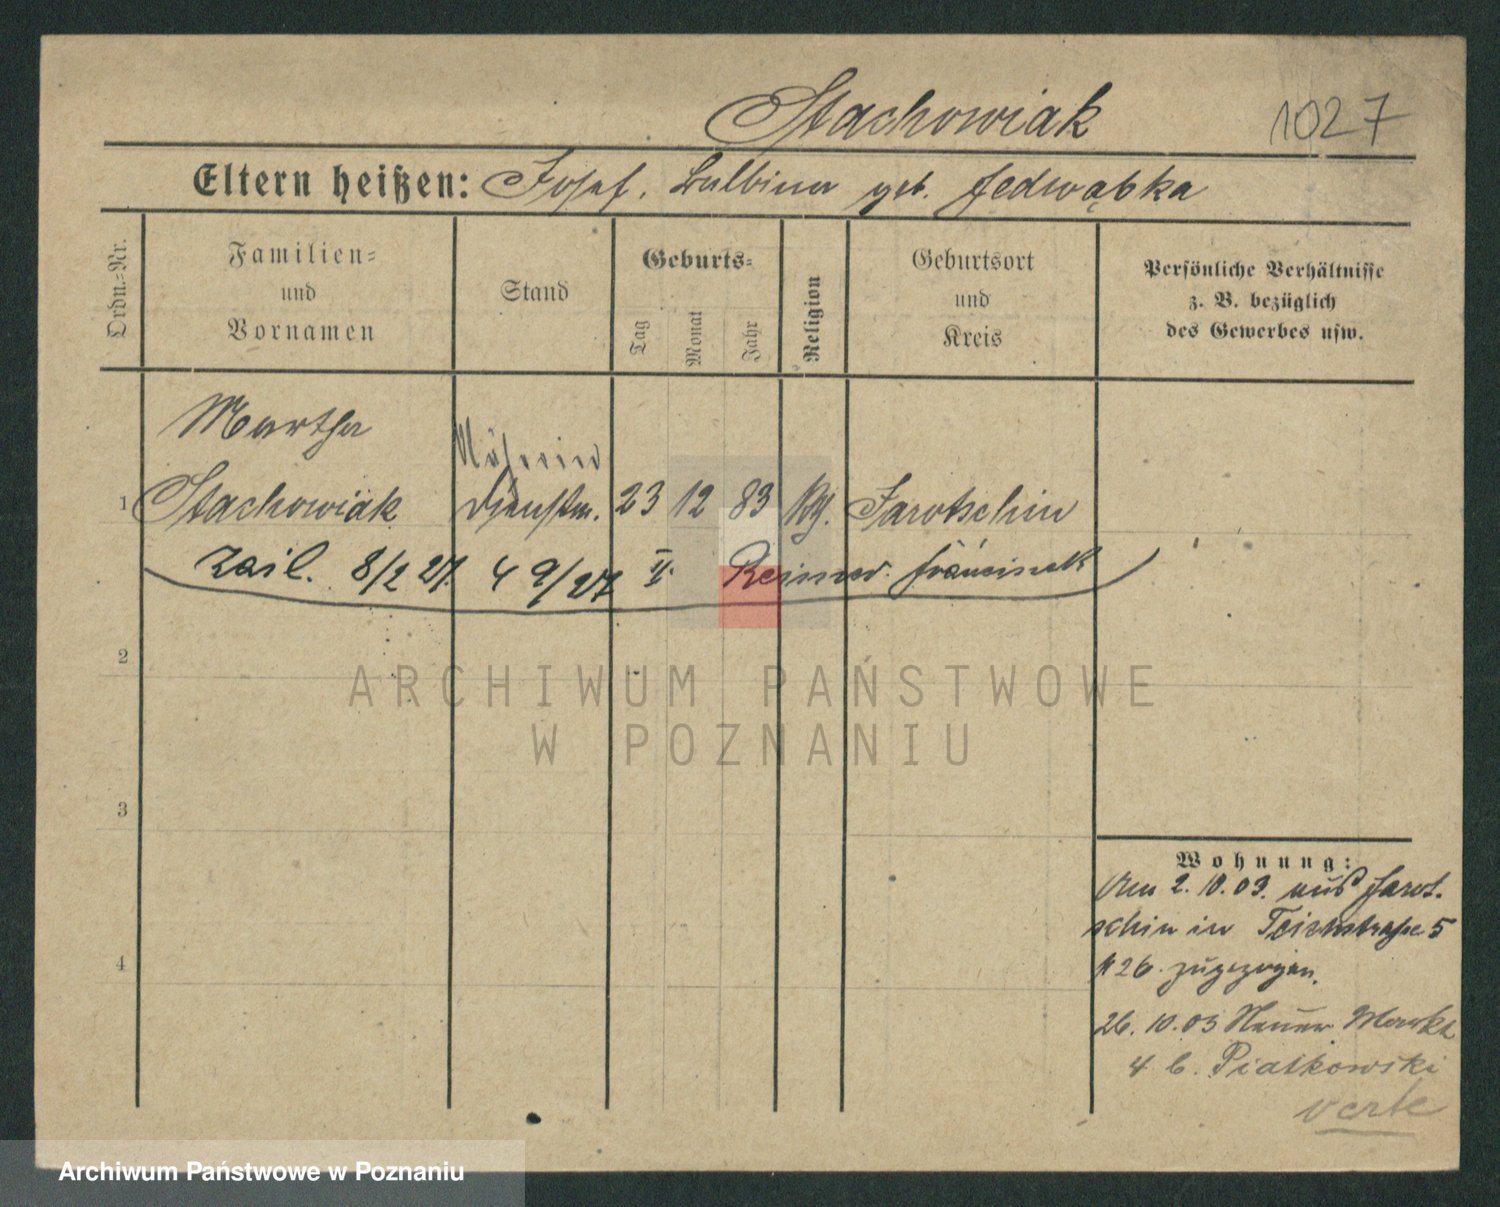 Stachowiak 1027
Eltern heißen: Josef. Balbina geb. Jedwąbka
Ordn.-Nr.
Familien-
und
Vornamen
Stand
Geburts-
Tag
Monat
Jahr
Religion
Geburtsort
und
Kreis
Persönliche Verhältnisse
z. B. bezüglich
des Gewerbes usw.
Martha
Näherin
1 Stachowiak Dienstm. 23 12 83 Jarotschin
8/2 27. 4 9/27 II.
2
3
4
Wohnung:
Am 2. 10. 03. aus Jarot-
schin in Teichstraße 5
26. zugezogen.
26. 10. 03 Neuer Markt
4 b. Piatkowski
verte
ARCHIWUM PAŃSTWOWE
W POZNANIU
Archiwum Państwowe w Poznaniu